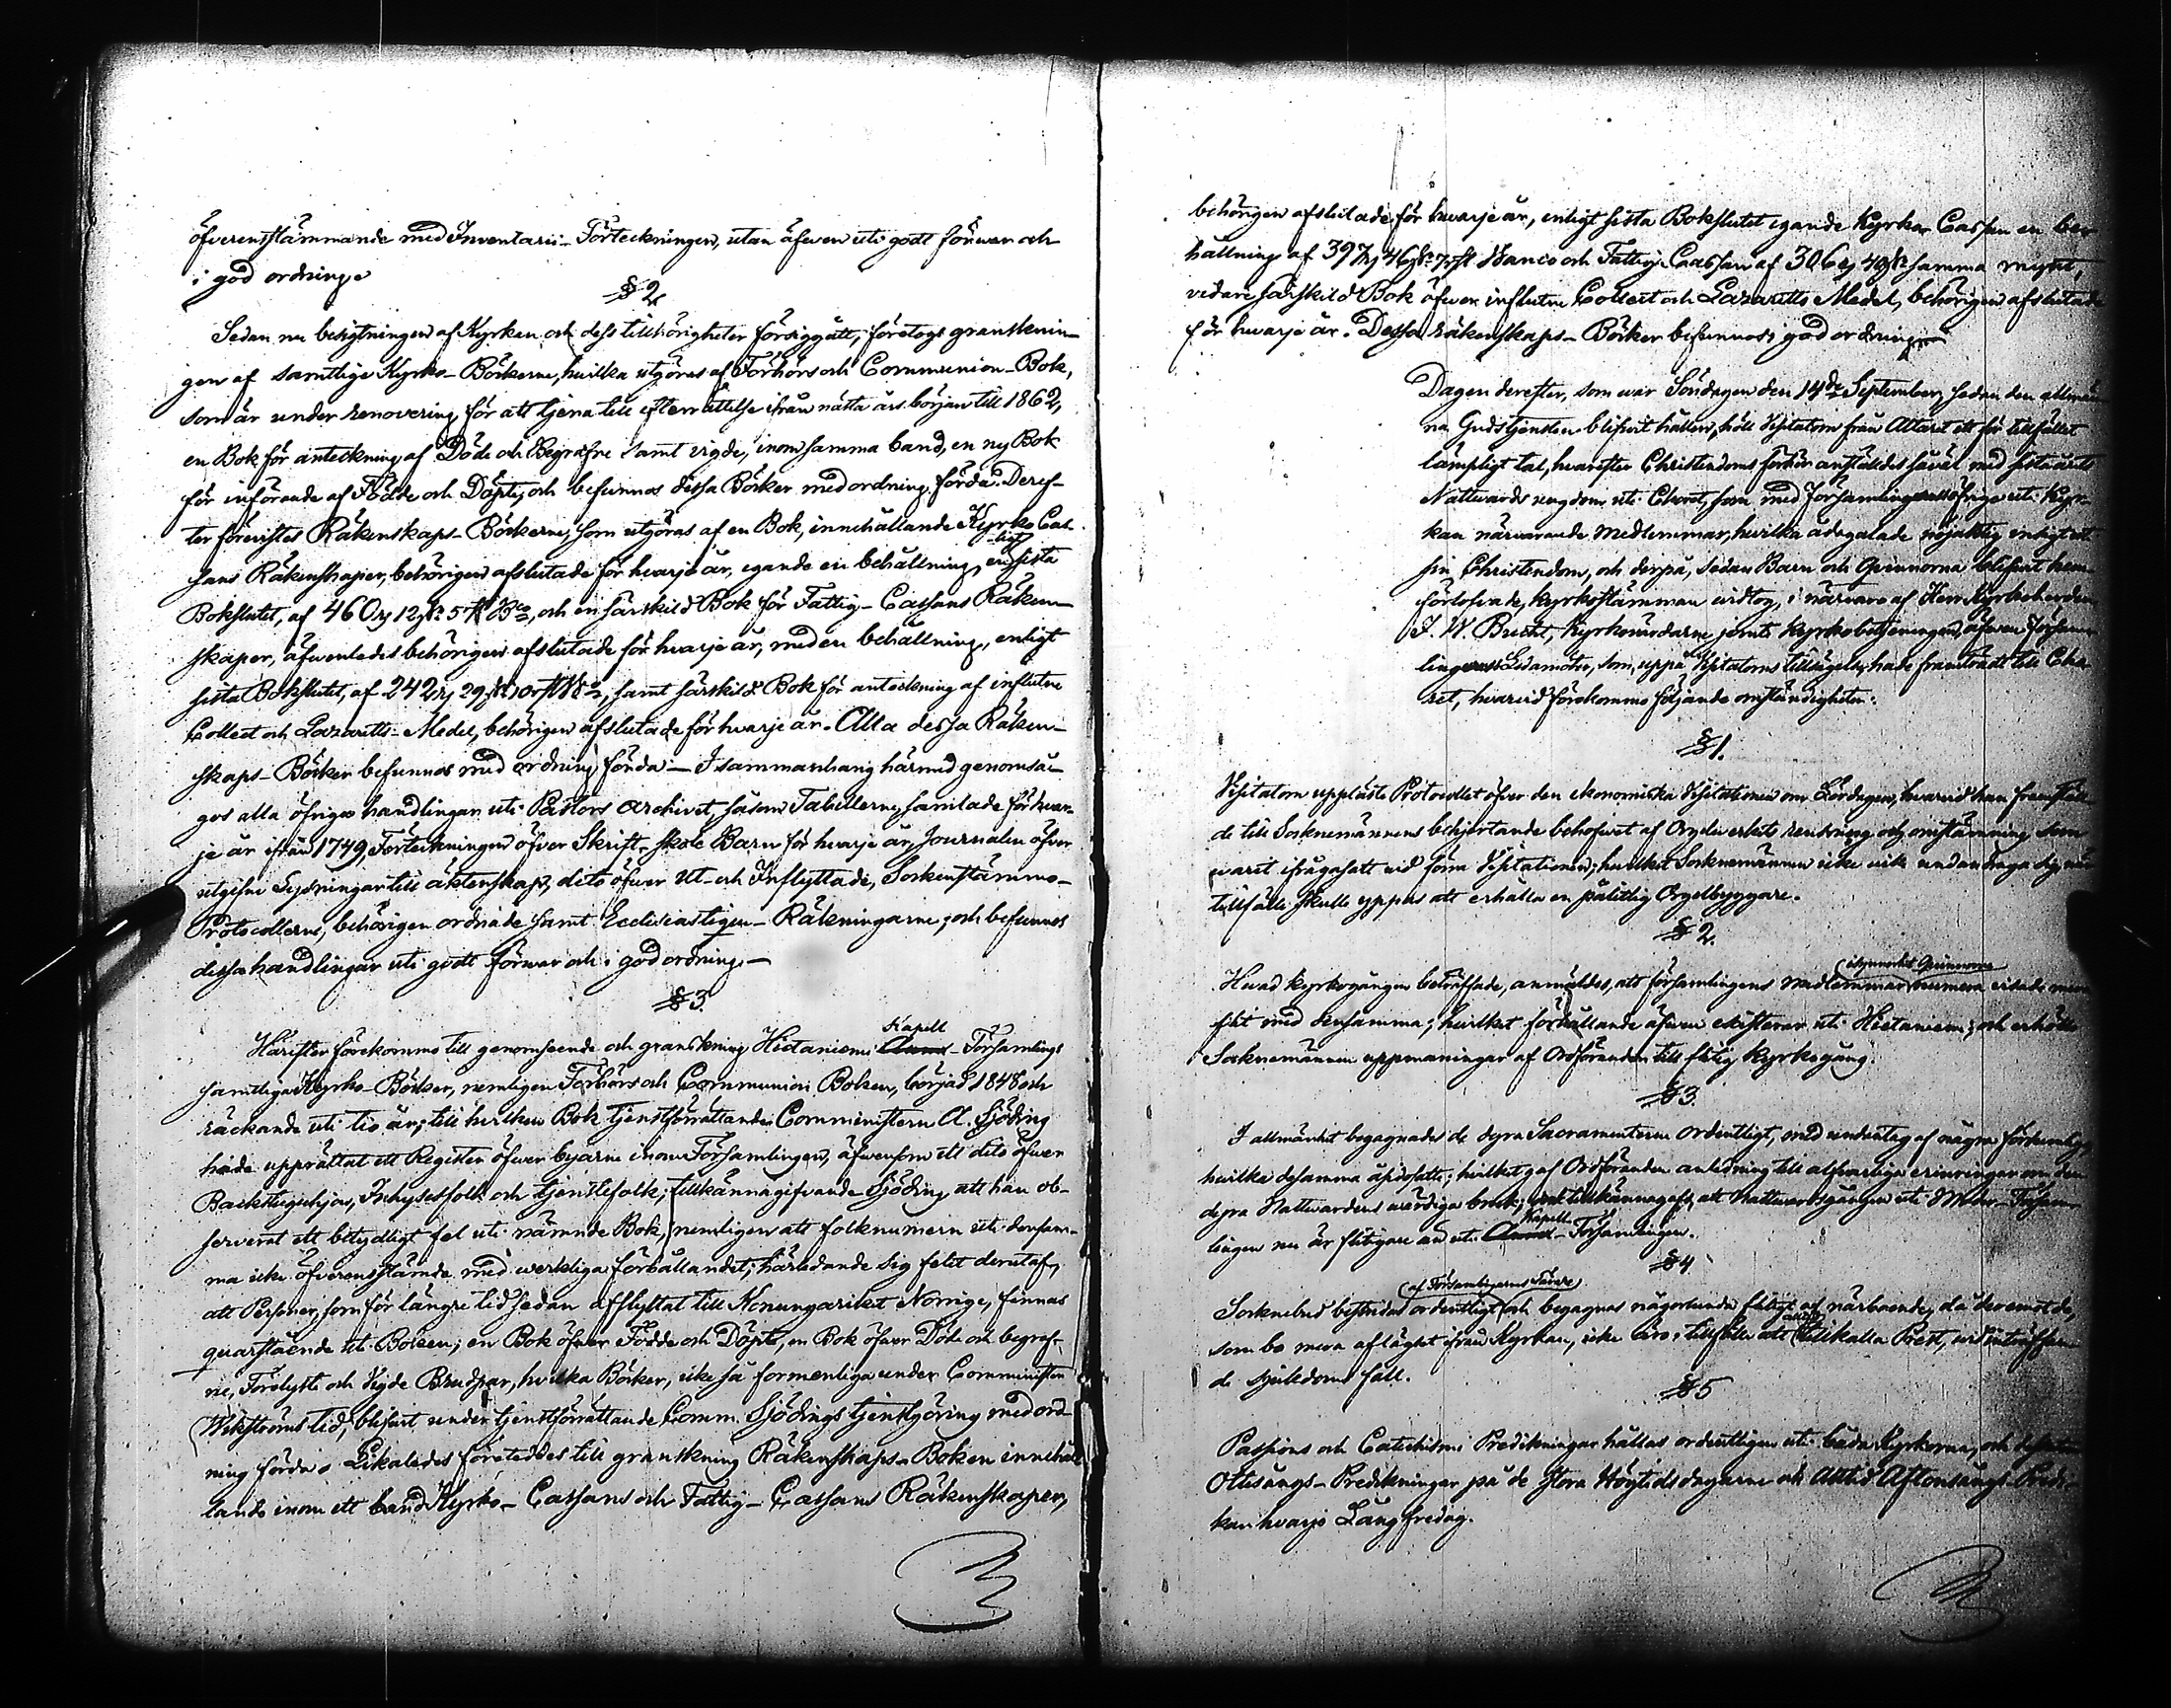 öfverensstämmande med Inventarii-Förteckningen, utan äfwen uti godt förwar och
i god ordning.
§ 2.
Sedan nu besigtningen af Kyrkan och dess tillhörigheter försiggått, företogs gransknin-
gen af samtlige Kyrko-Böckerne, hwilka utgöras af Förhörs och Communion-Bok,
som är under renovering, för att tjena till efterrättelse ifrån nästa års början till 1862,
en Bok för anteckning af Döde och Begrafne samt vigde, inom samma band, en ny Bok
för införande af Födde och Döpte, och befunnos dessa Böcker med ordning förda. Deref-
ter förevistes Räkenskaps-Böckerne, som utgöras af en Bok, innehållande Kyrko Cas-
sans Räkenskaper, behörigen afslutade för hvarje år, egande en behållning, enligt sista
Bokslutet, af 460 12 5 och en särskild Bok för Fattig-Cassans Räken-
skaper, äfwenledes behörigen afslutade för hvarje år, med en behållning, enligt
sista Bokslutet, af 242 29 10 samt särskild Bok för anteckning af influtne
Collect och Lazaretts-Medel, behörigen afslutade för hvarje år. Alla dessa Räken-
skaps-Böcker befunnos med ordning förda. — I sammanhang härmed genomså-
gos alla öfriga handlingar uti Pastors Archivet, såsom Tabellerne, samlade för hvar-
je år ifrån 1749, Förteckningen öfver Skrift-skole Barn för hvarje år, Journalen öfver
utgifne Lysningar till äktenskap, dito öfwer Ut- och Inflyttade, Sockenstämmo-
Protocollerne, behörigen ordnade samt Ecclesiastique-Räkningarne; och befunnos
dessa handlingar uti godt förwar och i god ordning. —
§ 3.
Härefter förekommo till genomseende och granskning Hietaniemi Kapell-Församlings
samtliga Kyrko-Böcker, nemligen Förhörs och Communion Boken, börjad 1848 och
räckande uti tio år; till hwilken Bok tjenstförrättande Comministern A. Sjöding
hade upprättat ett Register öfwer byarne inom Församlingen, äfwensom ett dito öfwer
Backstuguhjon, Inhysesfolk och tjenstefolk; tillkännagifwande Sjöding att han ob-
serverat ett betydligt fel uti nämnde Bok, nemligen att folknumern uti densam-
ma icke öfverensstämde med werkliga förhållandet; härledande sig felet derutaf,
att Personer, som för längre tid sedan afflyttat till Konungariket Norrige, finnas
quarstående uti Boken; en Bok öfwer Födde och Döpte, en Bok öfwer Döde och begraf-
ne, Förelyste och Vigde Brudpar, hwilka Böcker, icke så formenliga under Comministern
Wikströms tid, blifwit under tjenstförrättande Comm. Sjödings tjenstgöring med ord-
ning förda. Likaledes företeddes till granskning Räkenskaps-Boken innehål-
lande inom ett band Kyrko-Cassans och Fattig-Cassans Räkenskaper,
behörigen afslutade för hwarje år, enligt sista Bokslutet egande Kyrko Cassan en be-
hållning af 397 46 7 Banco och Fattig Cassan af 306 40 samma mynt,
vidare särskild Bok öfwer influtne Collect och Lazaretts Medel, behörigen afslutade
för hwarje år. Dessa räkenskaps-Böcker befunnos i god ordning.
Dagen derefter, som war Söndagen den 14de September, sedan den allmän-
na Gudstjensten blifwit hållen, höll Visitatorn från Altaret ett för tillfället
lämpligt tal, hwarefter Christendoms förhör anställdes såväl med sistwarets
Nattwards ungdom uti Choret, som med Församlingens öfriga uti Kyr-
kan närwarande medlemmar, hwilka ådagalade nöjaktig insigt uti
sin Christendom, och derpå, sedan Barn och Qwinnorna blifwit hem-
förlofwade, Kyrkostämman widtog, i närwaro af Herr Kyrkoherden
J. W. Brucht, Kyrkowärdarne jemte Kyrkobetjeningen, äfwen Försam-
lingens Ledamöter, som, uppå Visitatorns tillsägelse, hade framträdt till Cho-
ret, hwarwid förekommo följande omständigheter:
§ 1.
Visitatorn uppläste Protocollet öfver den ekonomiska Visitationen om Lördagen, hwarwid han framställ-
de till Socknemännens behjertande behofwet af Orgelwerkets rensning och omstämning som
warit ifrågasatt wid förra Visitationen; hwilket Socknemännen icke wille undandraga sig, när
tillfälle skulle yppas att erhålla en pålitlig Orgelbyggare.
§ 2.
Hwad kyrkogången beträffade, anmäldes, att församlingens medlemmar isynnerhet Qwinnorne numera wisade mera
flit med densamma; hwilket förhållande äfwen existerar uti Hietaniemi; och erhöllo
Socknemännen uppmaningar af Ordföranden till flitig kyrkogång.
§ 3.
I allmänhet begagnades de dyra Sacramenterne ordentligt, med undantag af några församlings
hwilka desamma åsidosatte; hwilket gaf Ordföranden anledning till alfwarliga erinringar om den
dyra Nattwardens wärdiga bruk; tillkännagafs, att nattwardsgången uti Moder-Försam-
lingen nu är flitigare än uti Kapell-Församlingen.
§ 4.
Socknebud besörjdas ordentligt af Församlingarnes Lärare och begagnas någorlunda flitigt af närboende, då deremot de,
som bo mera aflägset ifrån Kyrkan, icke äro i tillfälle att alltid tillkalla Prest, wid inträffan-
de sjukdoms fall.
§ 5
Passions och Catechismi Predikningar hållas ordentligen uti båda Kyrkorna, och dessutom
Ottesångs-Predikningar på de stora Högtidsdagarne och alltid Aftonsångs-Predi-
kan hwarje Långfredag.